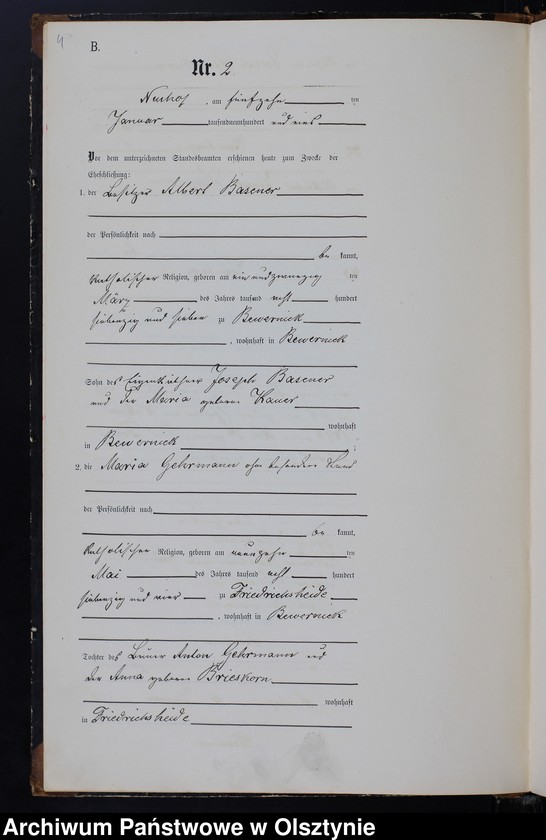 4
B.
Nr. 2
Neuhof, am fünfzehn ten
Januar tausendneunhundert und eins
Vor dem unterzeichneten Standesbeamten erschienen heute zum Zwecke der
Eheschließung:
1. der Besitzer Albert Basener
der Persönlichkeit nach
be kannt,
katholischer Religion, geboren am ein und zwanzig ten
März des Jahres tausend acht hundert
siebenzig und sieben zu Bewernick
, wohnhaft in Bewernick
Sohn des Eigenkäthner Joseph Basener
und der Maria geborene
wohnhaft
in Bewernick ;
2. die Maria Gehrmann ohne besonderen Stand
der Persönlichkeit nach
be kannt,
katholischer Religion, geboren am neunzehn ten
Mai des Jahres tausend acht hundert
siebenzig und vier zu Friedrichsheide
, wohnhaft in Bewernick
Tochter des Bauer Anton Gehrmann und
der Anna geborene Brieskorn
wohnhaft
in Friedrichsheide
Archiwum Państwowe w Olsztynie